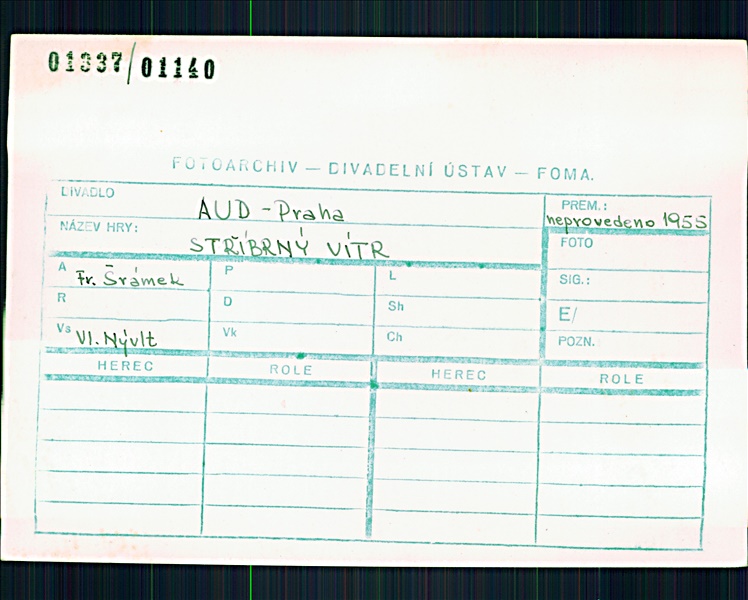 01337/01140
FOTOARCHIV — DIVADELNÍ ÚSTAV — FOMA.
DIVADLO AUD - Praha
PREM.: neprovedeno 1955
NÁZEV HRY: STŘÍBRNÝ VÍTR
FOTO
A Fr. Šrámek P L
SIG.:
R D Sh
E/
Vs Vl. Nývlt Vk Ch
POZN.
HEREC ROLE HEREC ROLE